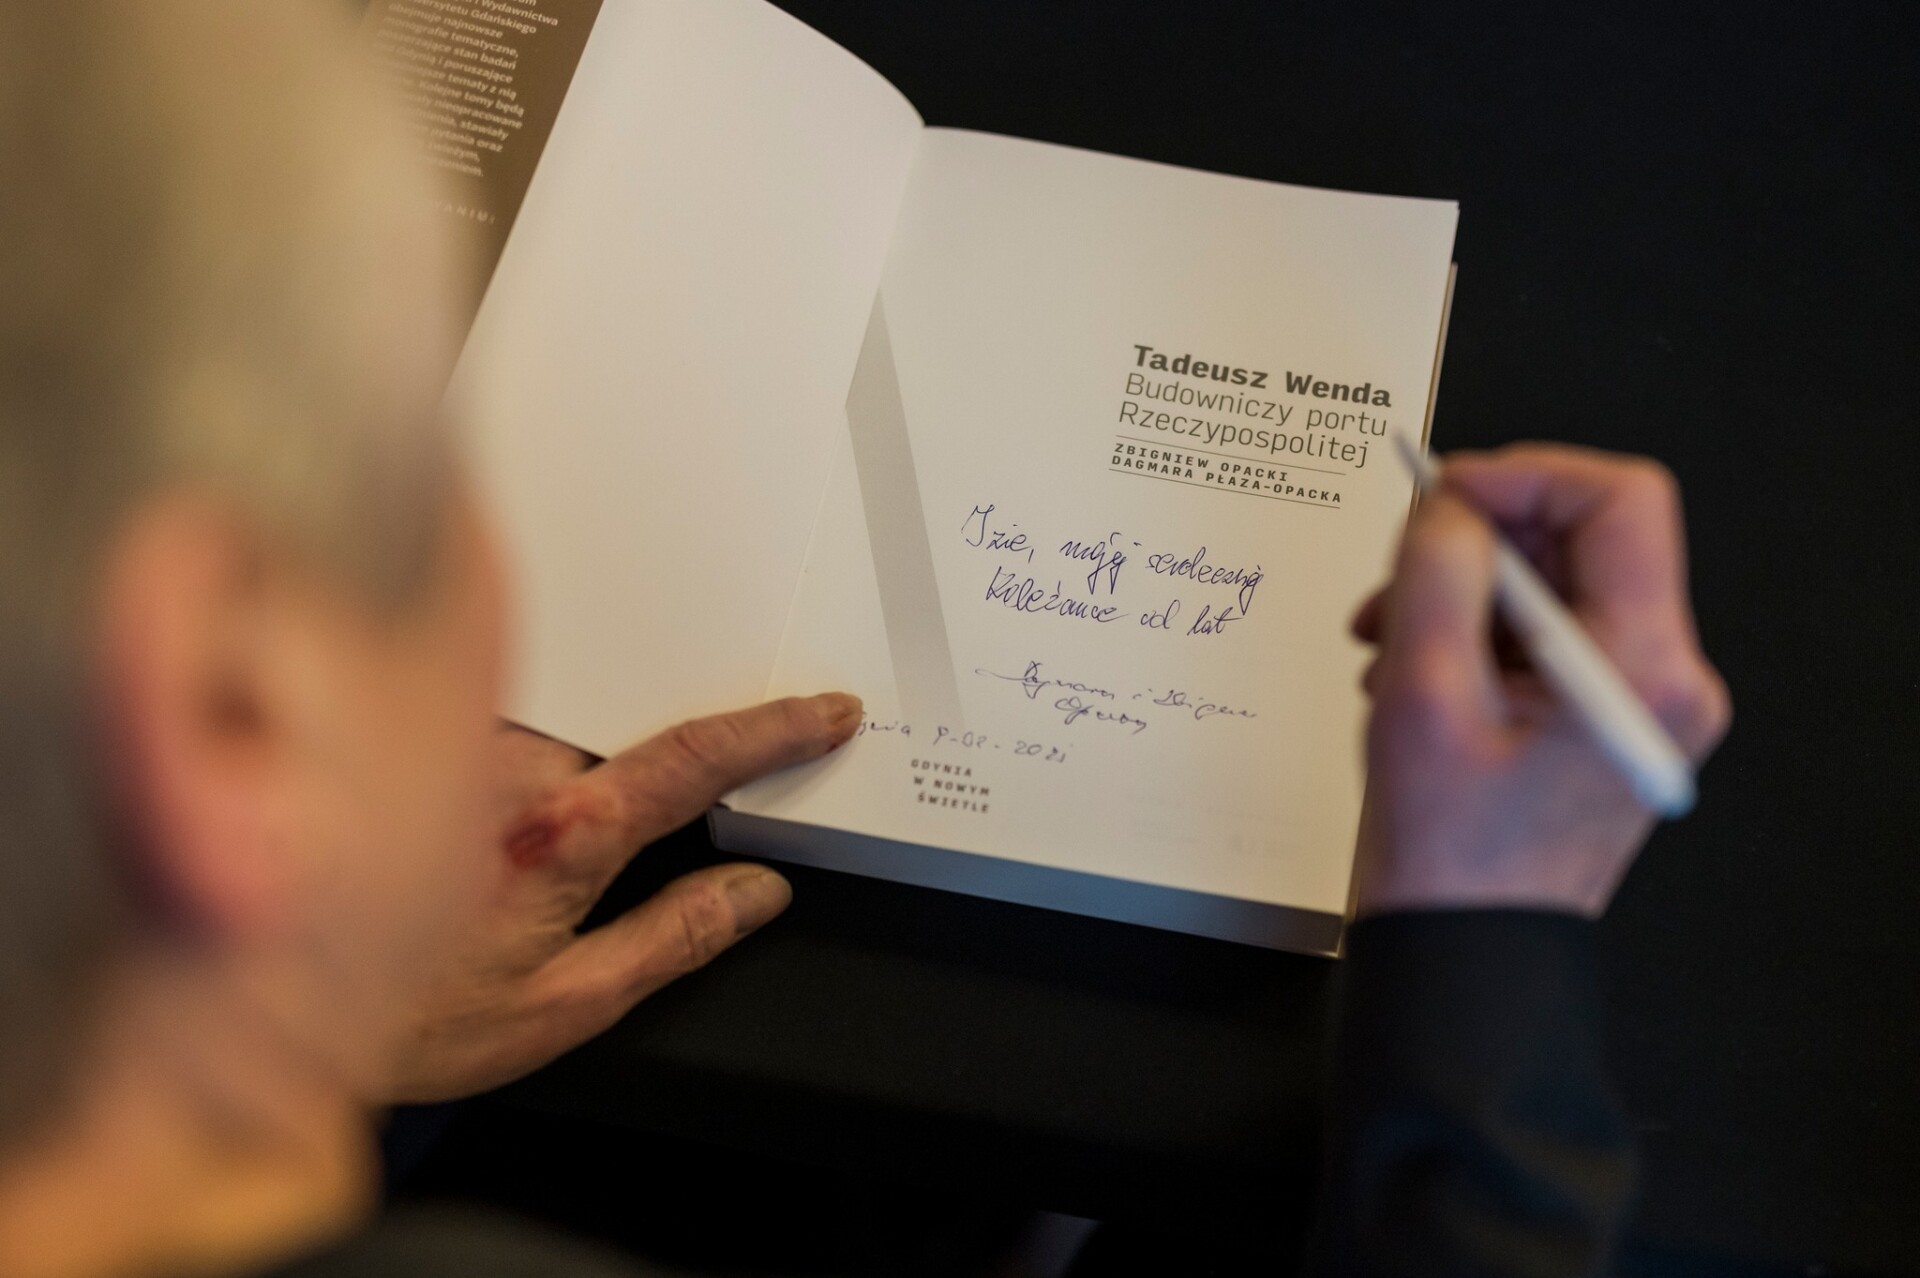 i Wydawnictwa
Uniwersytetu Gdańskiego
obejmuje najnowsze
monografie tematyczne,
poszerzające stan badań
nad Gdynią i poruszające
tematy z nią
Kolejne tomy będą
nieopracowane
stawiały
pytania oraz
Tadeusz Wenda
Budowniczy portu
Rzeczypospolitej
ZBIGNIEW OPACKI
DAGMARA PŁAZA-OPACKA
Izie, mojej serdecznej
Koleżance od lat
Dagmara i Zbigniew
Opaccy
9-02-2021
GDYNIA
W NOWYM
ŚWIETLE